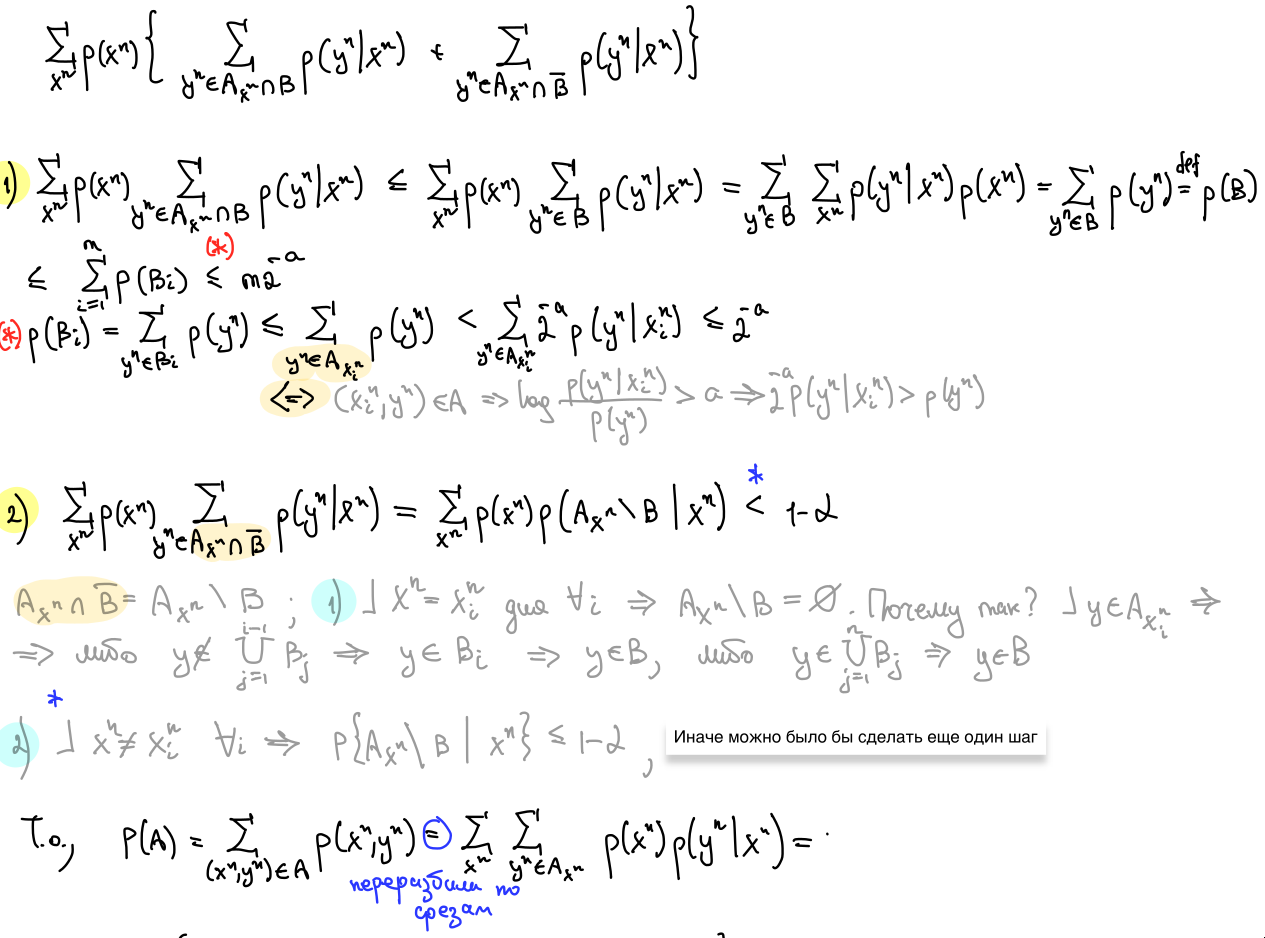 ∑_{xⁿ} p(xⁿ) { ∑_{yⁿ∈A_{xⁿ}∩B} p(yⁿ|xⁿ) + ∑_{yⁿ∈A_{xⁿ}∩B̅} p(yⁿ|xⁿ) }
1) ∑_{xⁿ} p(xⁿ) ∑_{yⁿ∈A_{xⁿ}∩B} p(yⁿ|xⁿ) ≤ ∑_{xⁿ} p(xⁿ) ∑_{yⁿ∈B} p(yⁿ|xⁿ) = ∑_{yⁿ∈B} ∑_{xⁿ} p(yⁿ|xⁿ) p(xⁿ) = ∑_{yⁿ∈B} p(yⁿ) =^{def} p(B)
≤ ∑_{i=1}^{m} p(B_i) ≤^{(*)} m2^{-a}
(*) p(B_i) = ∑_{yⁿ∈B_i} p(yⁿ) ≤ ∑_{yⁿ∈A_{x_iⁿ}} p(yⁿ) < ∑_{yⁿ∈A_{x_iⁿ}} 2^{-a} p(yⁿ|x_iⁿ) ≤ 2^{-a}
<=> (x_iⁿ, yⁿ) ∈ A => log p(yⁿ|x_iⁿ)/p(yⁿ) > a => 2^{-a} p(yⁿ|x_iⁿ) > p(yⁿ)
2) ∑_{xⁿ} p(xⁿ) ∑_{yⁿ∈A_{xⁿ}∩B̅} p(yⁿ|xⁿ) = ∑_{xⁿ} p(xⁿ) p(A_{xⁿ}\B | xⁿ) <^{*} 1-α
A_{xⁿ}∩B̅ = A_{xⁿ}\B ; 1) ⅃ xⁿ = x_iⁿ для ∀i => A_{xⁿ}\B = ∅. Почему так? ⅃ y∈A_{x_iⁿ} =>
=> либо y∉ ⋃_{j=1}^{i-1} B_j => y∈B_i => y∈B, либо y∈ ⋃_{j=1}^{n} B_j => y∈B
* 2) ⅃ xⁿ ≠ x_iⁿ ∀i => P{A_{xⁿ}\B | xⁿ} ≤ 1-α , Иначе можно было бы сделать еще один шаг
Т.о., P(A) = ∑_{(xⁿ,yⁿ)∈A} p(xⁿ,yⁿ) = ∑_{xⁿ} ∑_{yⁿ∈A_{xⁿ}} p(xⁿ) p(yⁿ|xⁿ) =
переразбили по
срезам